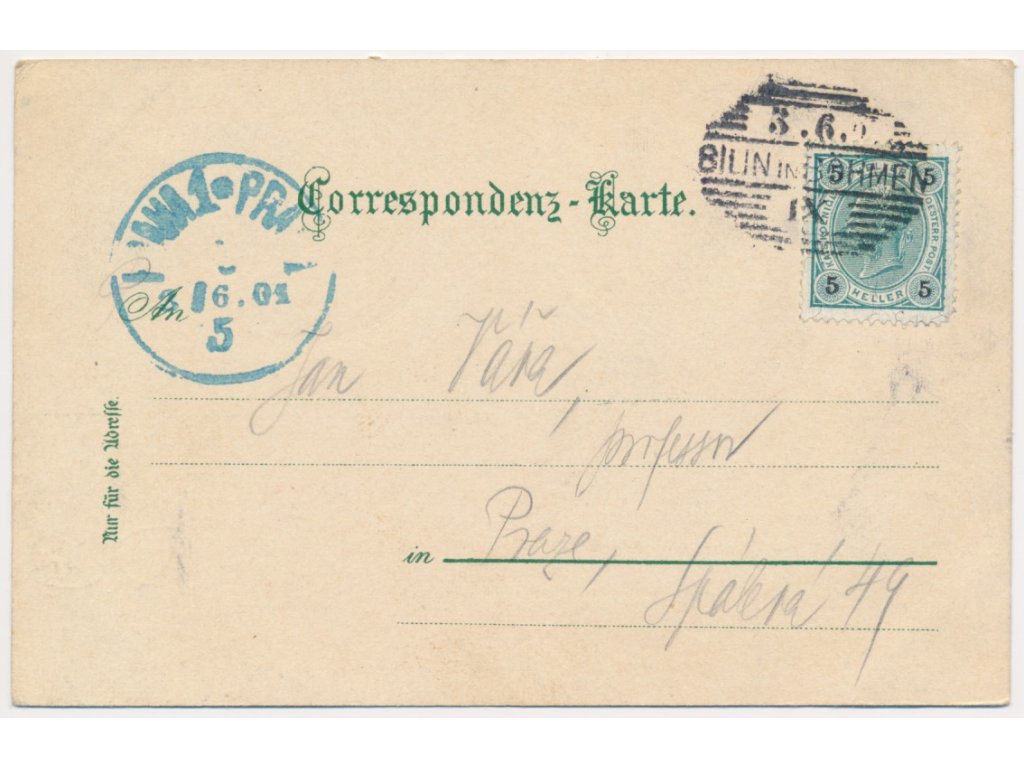 5.6.
BILIN IN BÖHMEN
IX
5 5
KAIS. KÖNIGL. OESTERR. POST
5 HELLER 5
1 PRA
Correspondenz-Karte.
6.01
5
An
Jan Váňa,
professor
Nur für die Adresse.
in Praze,
Spálená 49